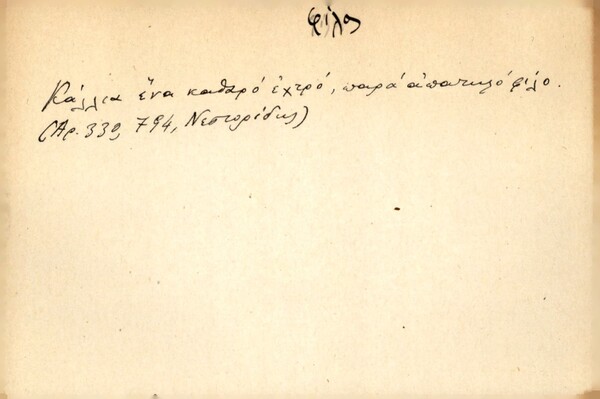 φίλος
Κάλλια ἕνα καθαρό ἐχτρό, παρά ἀπατηλό φίλο.
(Αρ. 339, 794, Νεστορίδης)